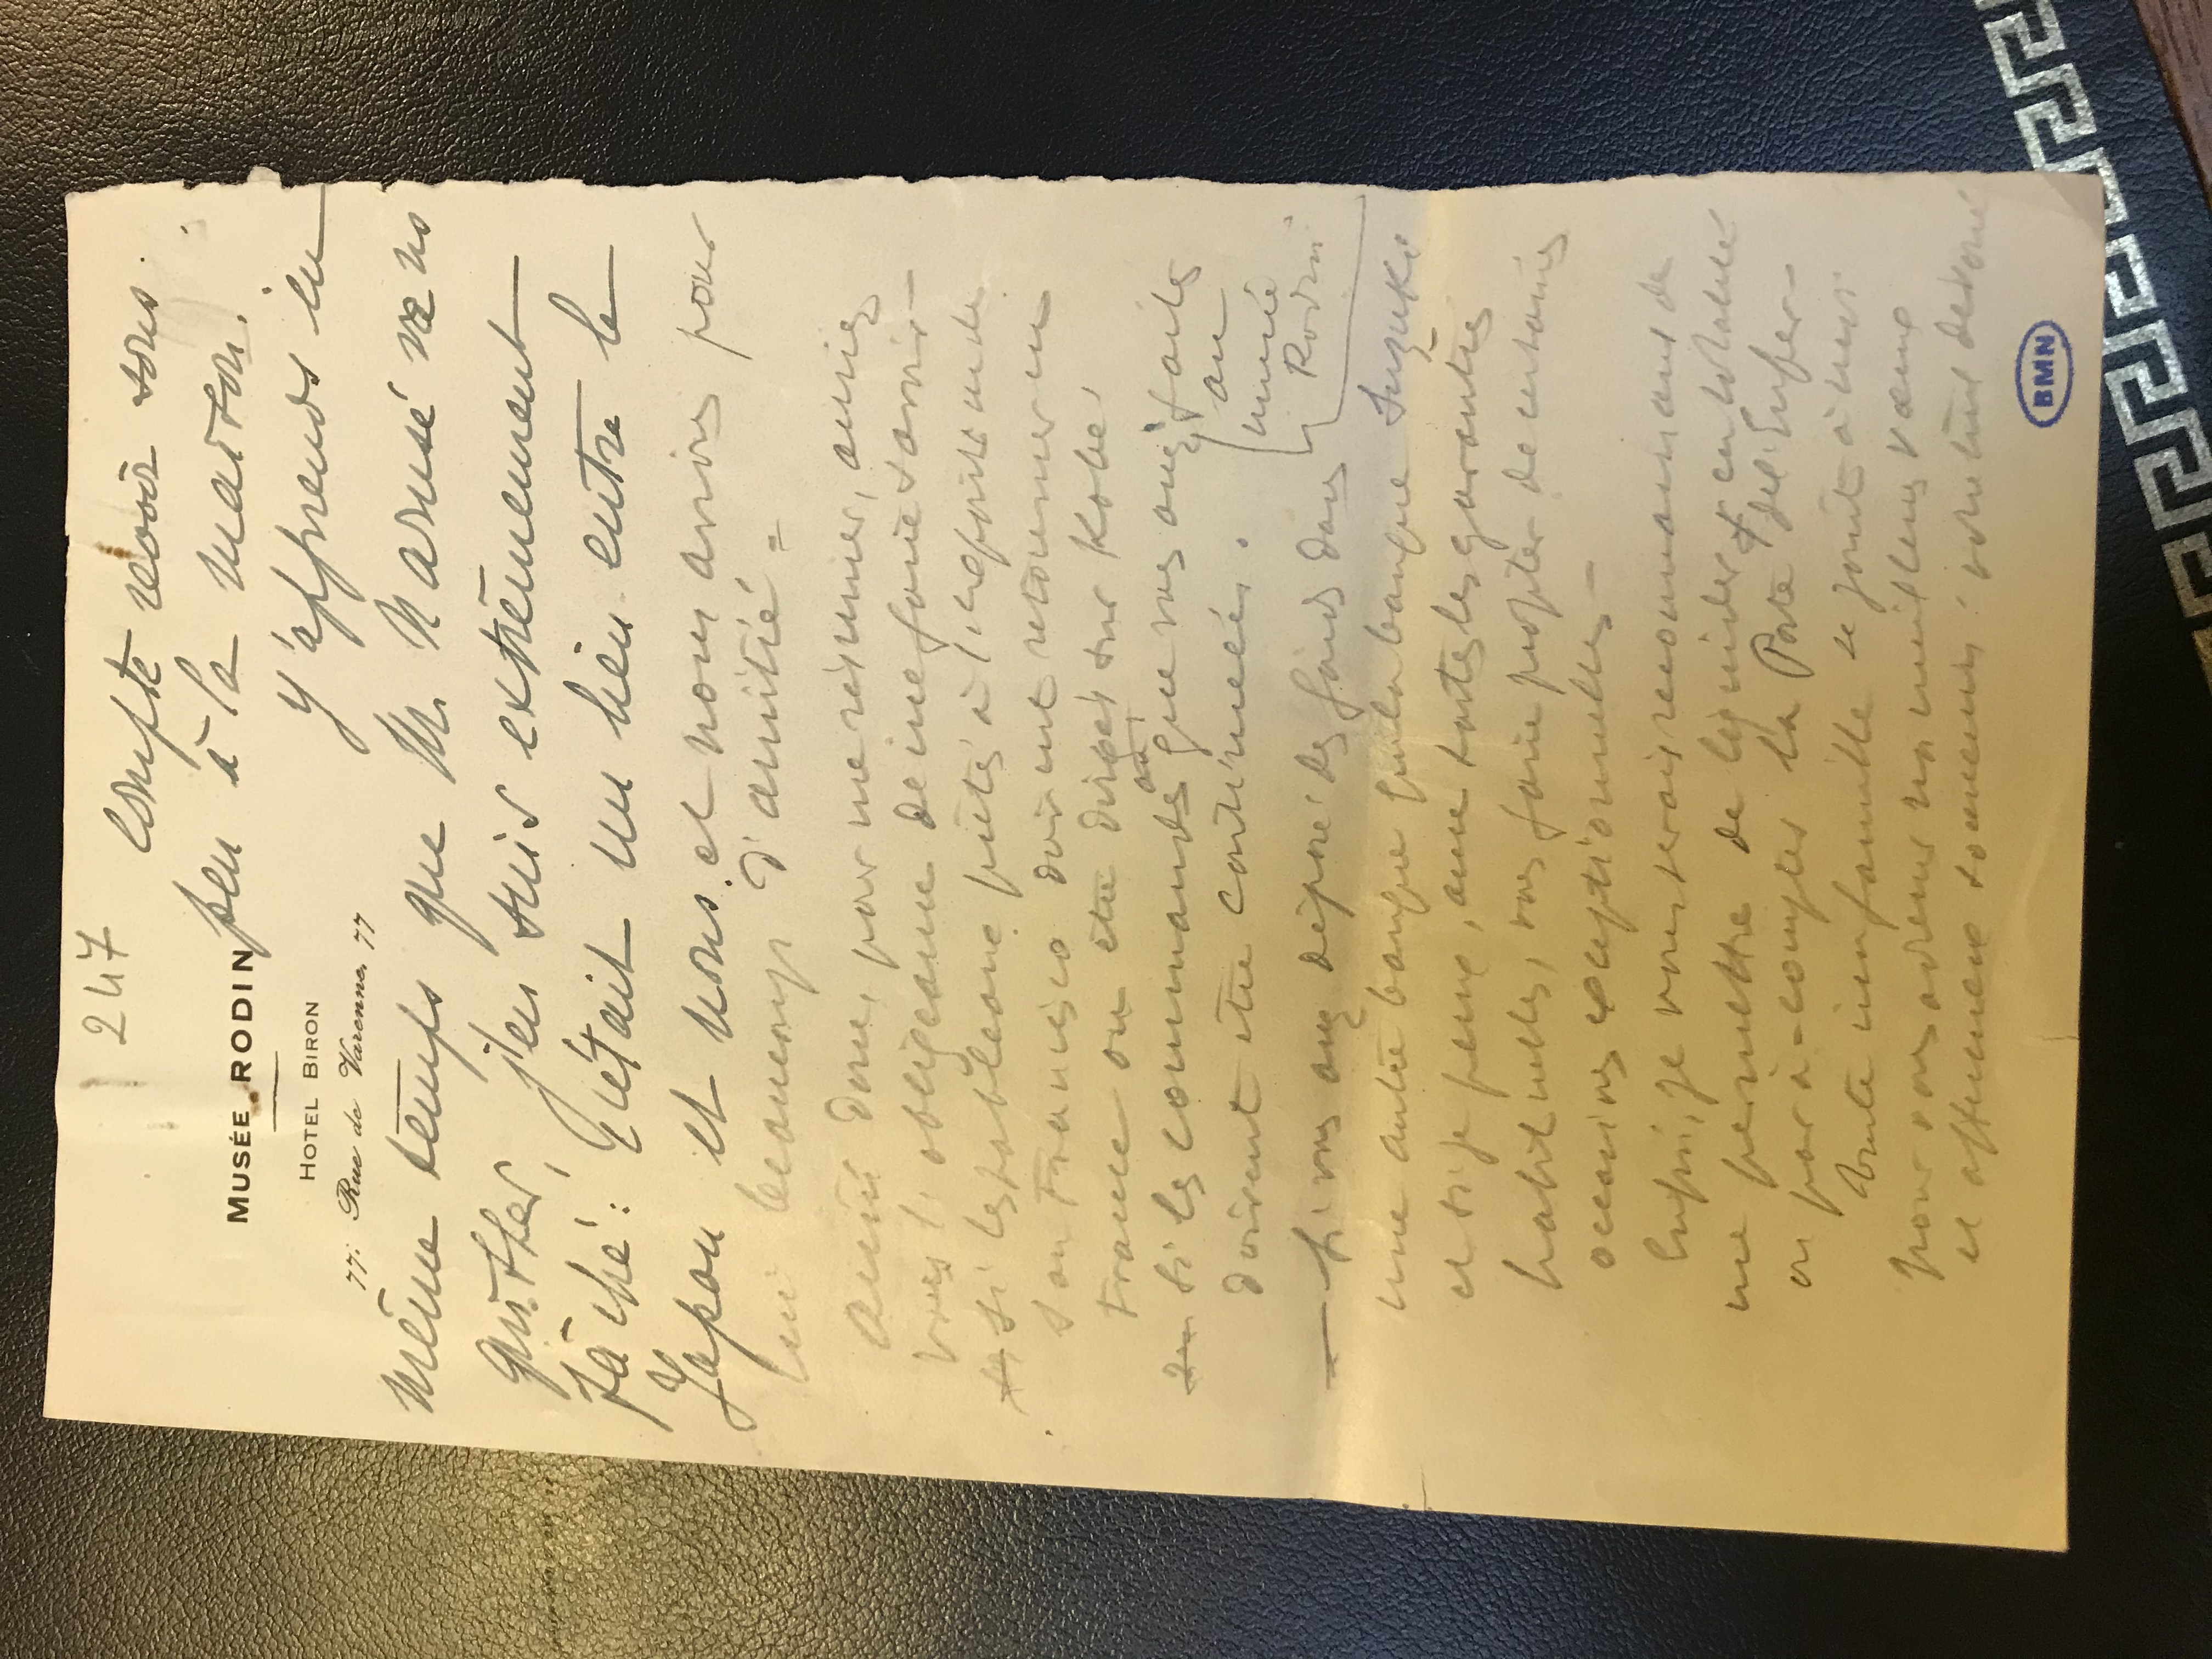 247
compte revoir sous
peu à la maison.
MUSÉE RODIN
HOTEL BIRON
77, Rue de Varenne, 77
J'apprends en
même temps que M. Narusé va no
quitter, j'en suis extrêmement
fâché: C'était un lien entre le
Japon et nous. et nous avions pour
lui beaucoup d'amitié =
donc, pour me résumer,
vous l'obligeance de me faire savoir -
si les tableaux prêtés à
San Francisco doivent retourner en
France ou être dirigés sur Kobe,
si les commandes que vous avez faites
au
musée
Rodin
doivent être continuées.
— si vous avez déposé des fonds dans
une autre banque que la banque Suzuki
et si je peux, avec toutes les garanties
habituelles, vous faire profiter de certaines
occasions exceptionnelles -
Enfin, je vous serais reconnaissant de
me permettre de liquider
par à-comptes la Porte de l'Enfer -
Toute ma famille se joint à moi
pour vous adresser nos meilleurs vœux
et affectueux souvenirs.
BMN